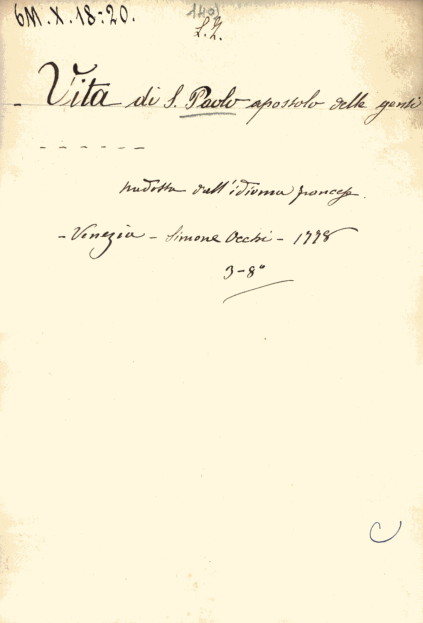 6M.X.18-20.
149)
L.Z.
- Vita di S. Paolo apostolo delle genti
- - - - - - -
tradotta dall'idioma francese.
- Venezia - Simone Occhi - 1778
3-8°
C